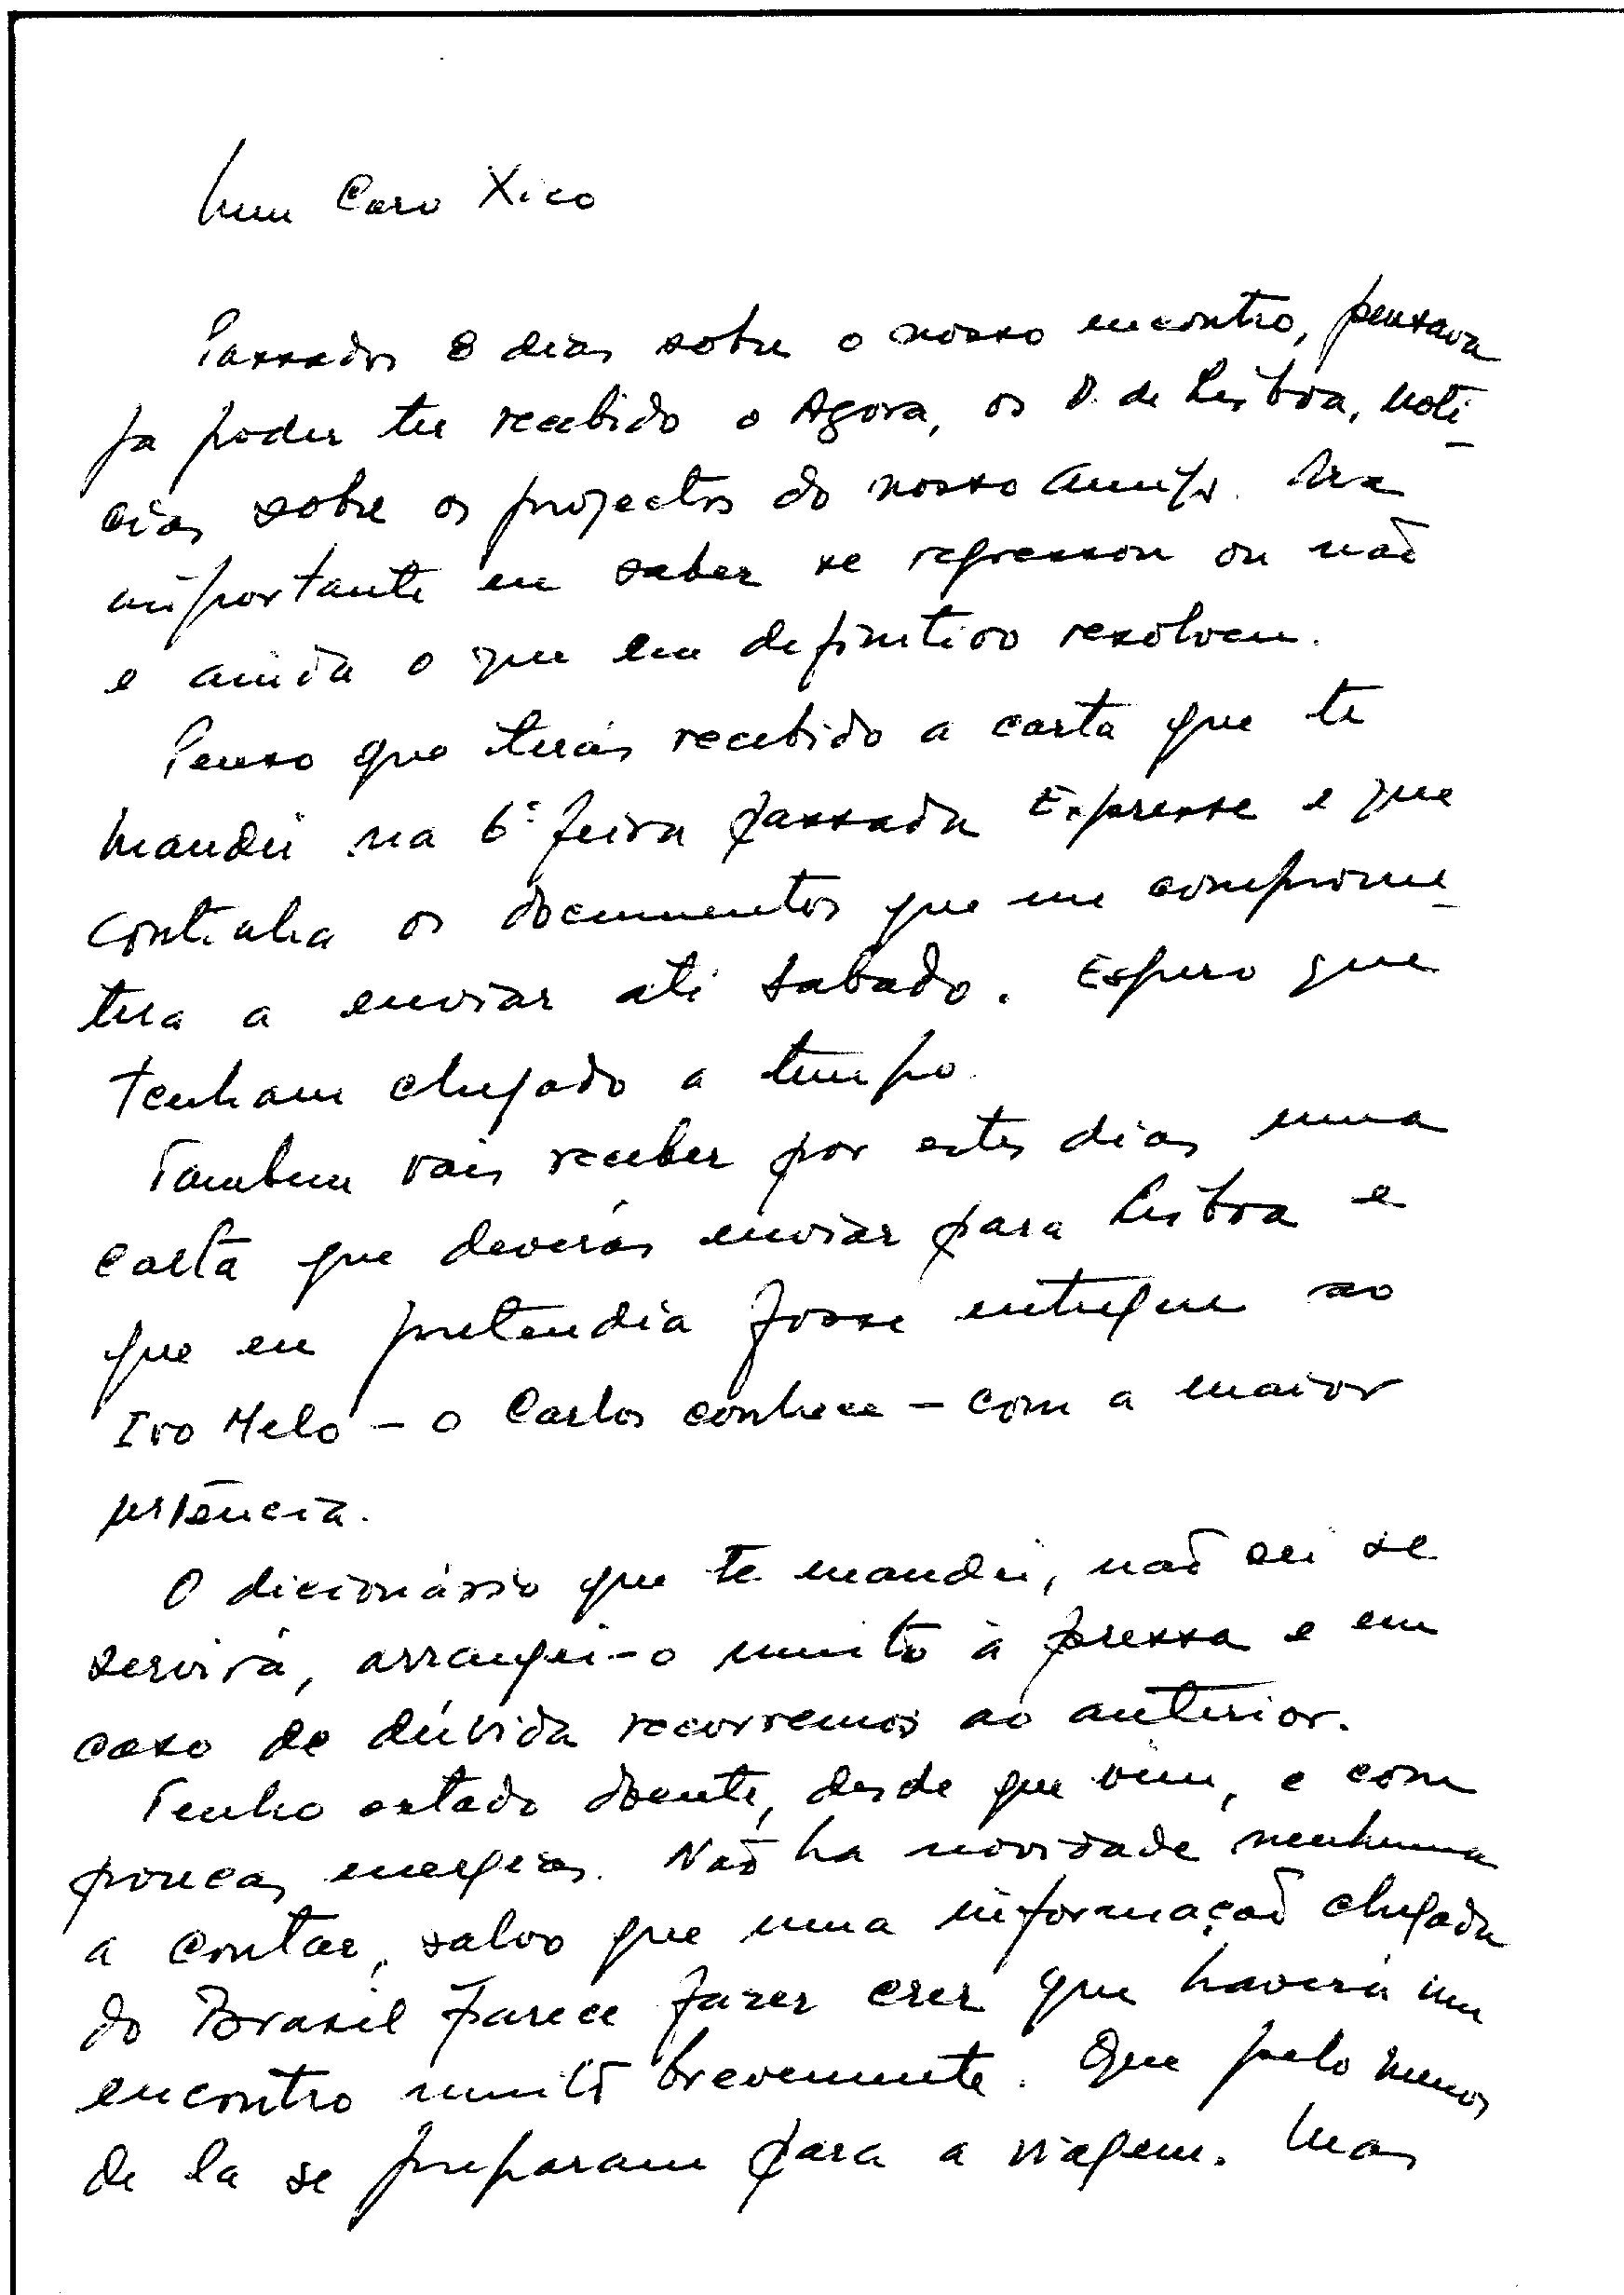 Meu Caro Xico
Passados 8 dias sobre o nosso encontro, pensava
ja poder ter recebido o Agora, os D. de Lisboa, noti
cias sobre os projectos do nosso amigo. Era
importante eu saber se regressou ou não
e ainda o que em definitivo resolveu.
Penso que terás recebido a carta que te
mandei na 6ª feira passada Expresse e que
continha os documentos que me comprome
tera a enviar até sabado. Espero que
tenham chegado a tempo.
Tambem vais receber por estes dias uma
carta que deverás enviar para Lisboa e
que eu pretendia fosse entregue ao
Ivo Melo - o Carlos conhece - com a maior
urgência.
O dicionário que te mandei, não sei se
servirá, arranjei-o muito à pressa e em
caso de dúvida recorremos ao anterior.
Tenho estado doente, desde que vim, e com
poucas energias. Não ha novidade nenhuma
a contar, salvo que uma informação chegada
do Brasil parece fazer crer que haverá um
encontro muito brevemente. Que pelo menos
de la se preparam para a viagem. Mas